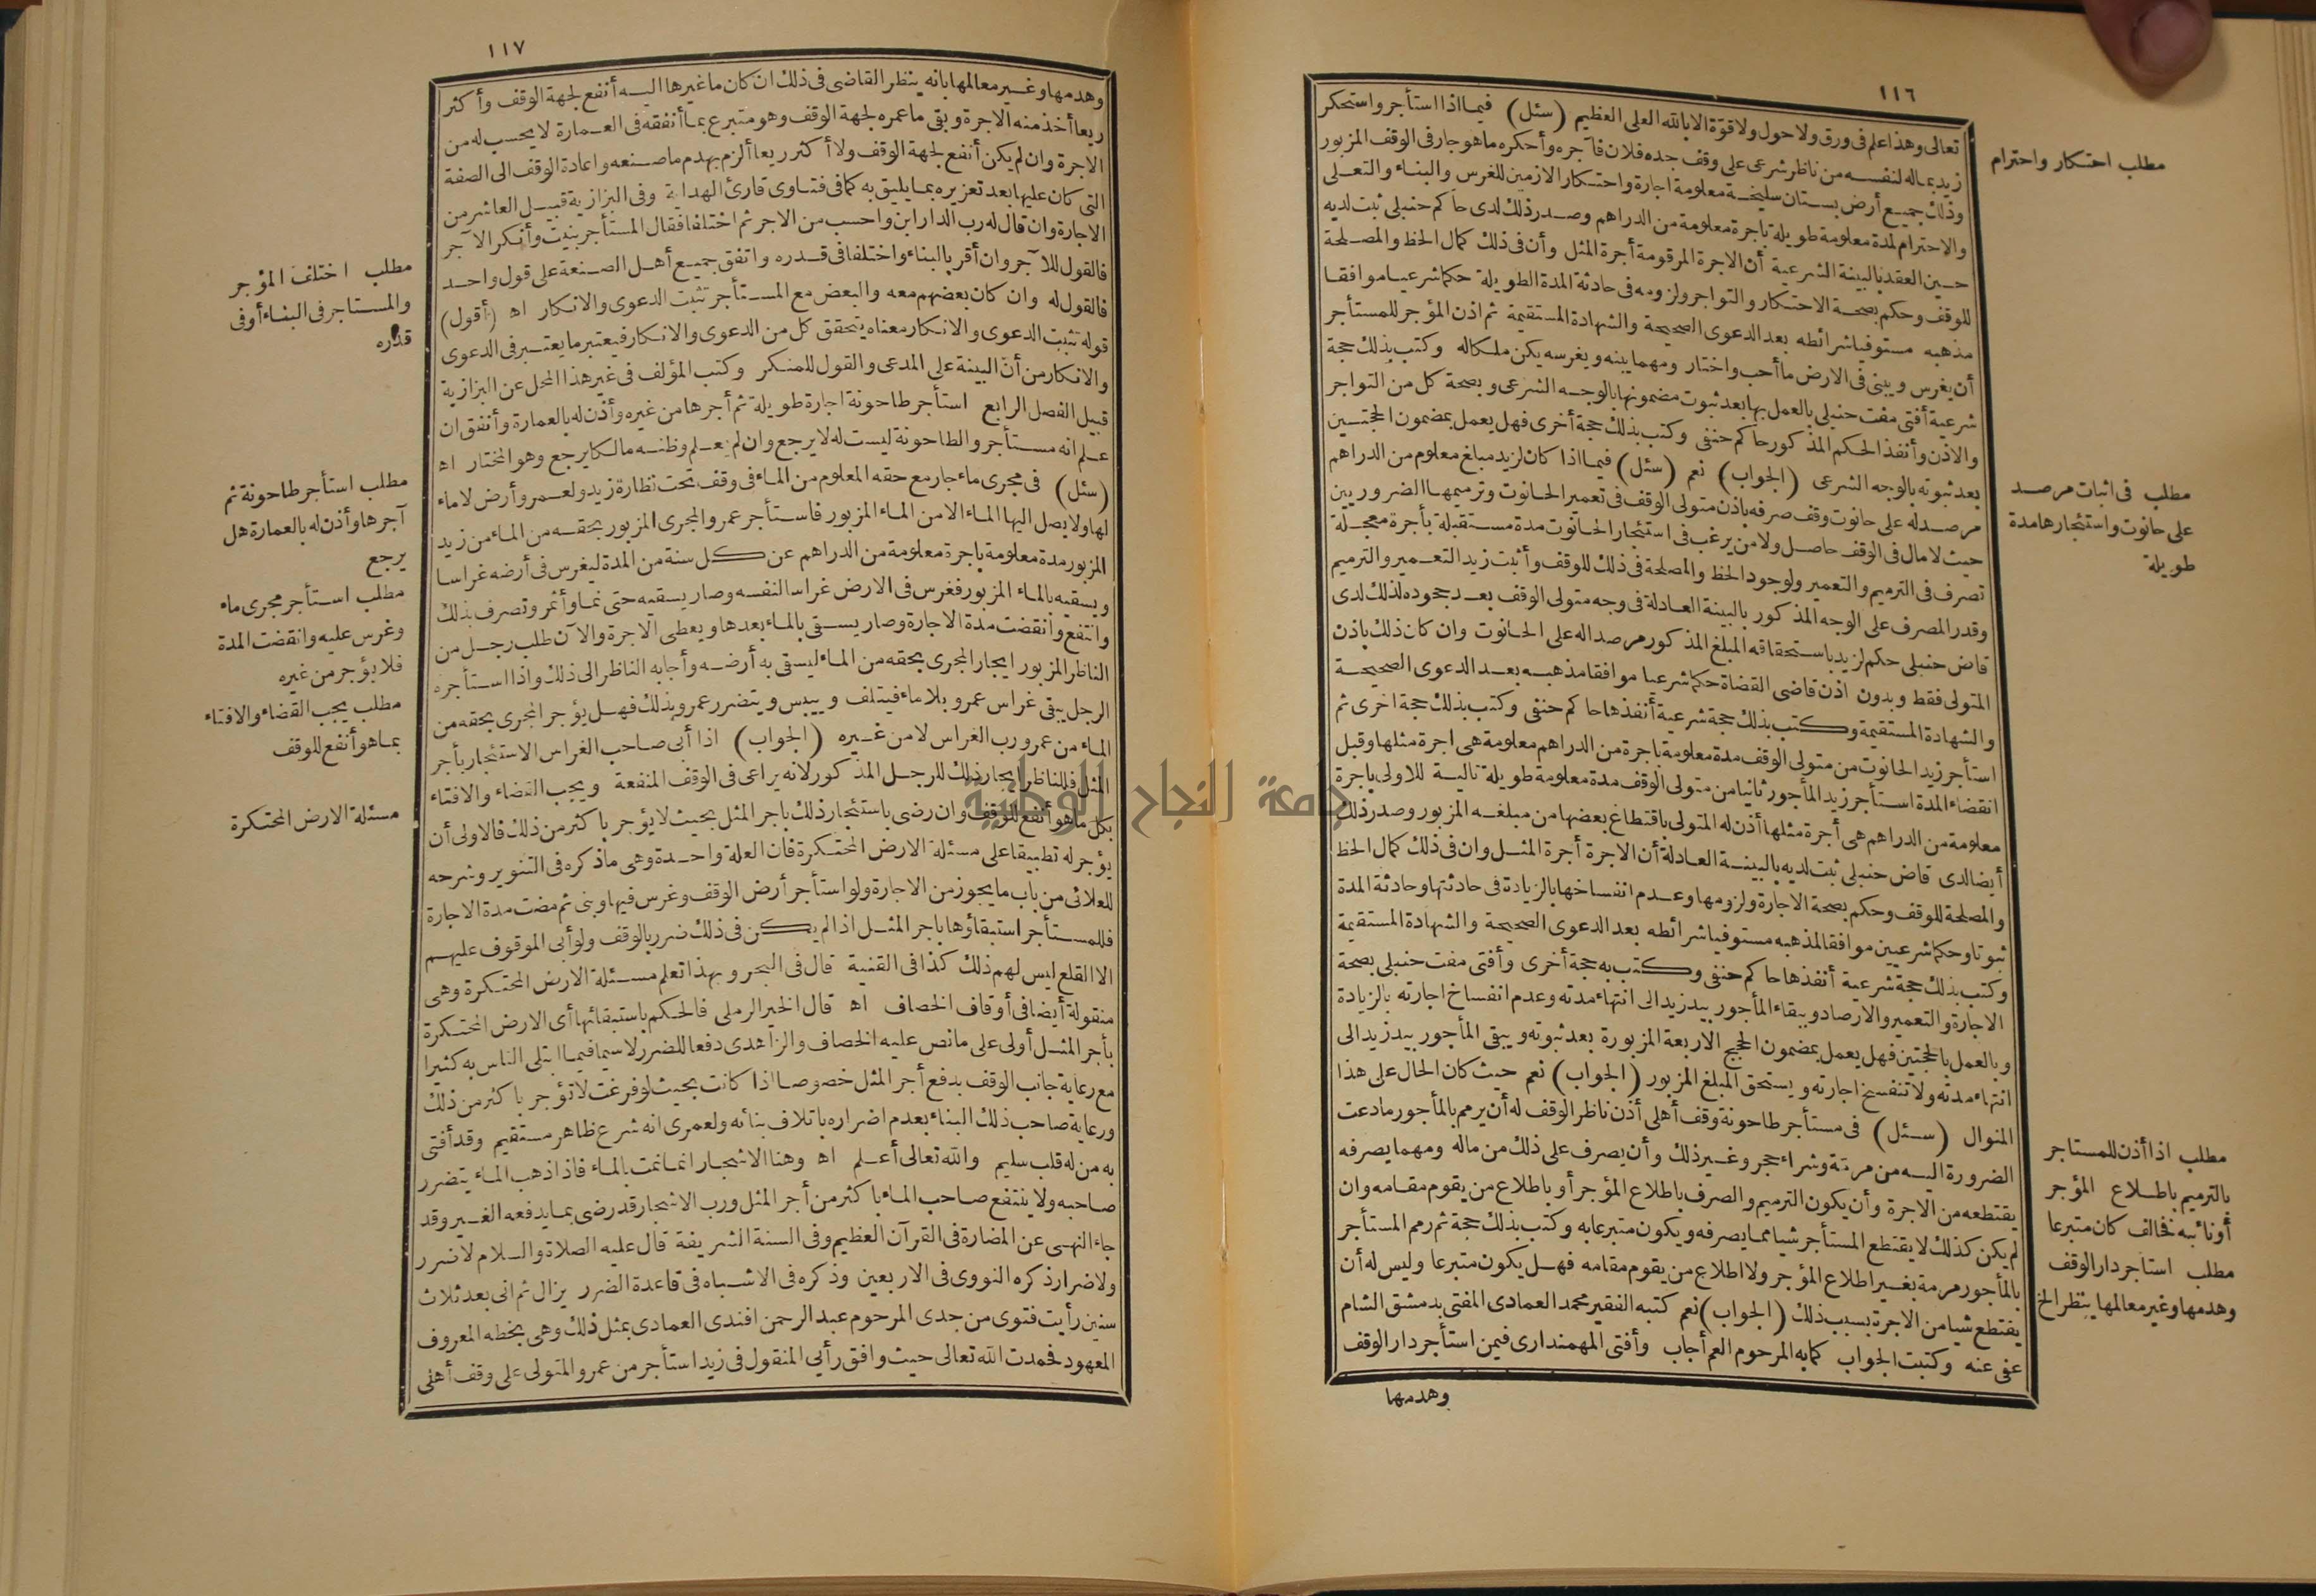 ١١٦
تعالى وهذا اعلم فى ورق ولا حول ولا قوة الا بالله العلى العظيم (سئل) فيما اذا استأجر واستحكر
زيد بماله لنفسه من ناظر شرعى على وقف جده فلان فآجره وأحكره ما هو جار فى الوقف المزبور
وذلك جميع أرض بستان سليخة معلومة اجارة واحتكار الازمين للغرس والبناء والتعلى
والاحترام لمدة معلومة طويلة باجرة معلومة من الدراهم وصدر ذلك لدى حاكم حنبلى ثبت لديه
حين العقد بالبينة الشرعية أن الاجرة المرقومة أجرة المثل وأن فى ذلك كمال الحظ والمصلحة
للوقف وحكم بصحة الاحتكار والتواجر ولزومه فى حادثة المدة الطويلة حكما شرعيا موافقا
مذهبه مستوفيا شرائطه بعد الدعوى الصحيحة والشهادة المستقيمة ثم اذن المؤجر للمستأجر
أن يغرس ويبنى فى الارض ما أحب واختار ومهما يبنه ويغرسه يكن ملكا له وكتب بذلك حجة
شرعية أفتى مفت حنبلى بالعمل بها بعد ثبوت مضمونها بالوجه الشرعى وبصحة كل من التواجر
والاذن وأنفذ الحكم المذكور حاكم حنفى وكتب بذلك حجة أخرى فهل يعمل بمضمون الحجتين
بعد ثبوته بالوجه الشرعى (الجواب) نعم (سئل) فيما اذا كان لزيد مبلغ معلوم من الدراهم
مرصد له على حانوت وقف صرفه باذن متولى الوقف فى تعمير الحانوت وترميمها الضروريين
حيث لا مال فى الوقف حاصل ولا من يرغب فى استئجار الحانوت مدة مستقبلة بأجرة معجلة
تصرف فى الترميم والتعمير ولوجود الحظ والمصلحة فى ذلك للوقف وأثبت زيد التعمير والترميم
وقدر المصرف على الوجه المذكور بالبينة العادلة فى وجه متولى الوقف بعد جحوده لذلك لدى
قاض حنبلى حكم لزيد باستحقاقه المبلغ المذكور مرصدا له على الحانوت وان كان ذلك باذن
المتولى فقط وبدون اذن قاضى القضاة حكما شرعيا موافقا مذهبه بعد الدعوى الصحيحة
والشهادة المستقيمة وكتب بذلك حجة شرعية أنفذها حاكم حنفى وكتب بذلك حجة اخرى ثم
استأجر زيد الحانوت من متولى الوقف مدة معلومة باجرة من الدراهم معلومة هى اجرة مثلها وقبل
انقضاء المدة استأجر زيد المأجور ثانيا من متولى الوقف مدة معلومة طويلة تالية للاولى باجرة
معلومة من الدراهم هى أجرة مثلها أذن له المتولى باقتطاع بعضها من مبلغه المزبور وصدر ذلك
أيضا لدى قاض حنبلى ثبت لديه بالبينة العادلة أن الاجرة أجرة المثل وان فى ذلك كمال الحظ
والمصلحة للوقف وحكم بصحة الاجارة ولزومها وعدم انفساخها بالزيادة فى حادثتها وحادثة المدة
ثبوتا وحكما شرعيين موافقا لمذهبه مستوفيا شرائطه بعد الدعوى الصحيحة والشهادة المستقيمة
وكتب بذلك حجة شرعية أنفذها حاكم حنفى وكتب به حجة أخرى وأفتى مفت حنبلى بصحة
الاجارة والتعمير والارصاد وببقاء المأجور بيد زيد الى انتهاء مدته وعدم انفساخ اجارته بالزيادة
وبالعمل بالحجتين فهل يعمل بمضمون الحجج الاربعة المزبورة بعد ثبوته ويبقى المأجور بيد زيد الى
انتهاء مدته ولا تنفسخ اجارته ويستحق المبلغ المزبور (الجواب) نعم حيث كان الحال على هذا
المنوال (سئل) فى مستأجر طاحونة وقف أهلى أذن ناظر الوقف له أن يرمم بالمأجور ما دعت
الضرورة اليه من مرمة وشراء حجر وغير ذلك وأن يصرف على ذلك من ماله ومهما يصرفه
يقتطعه من الاجرة وأن يكون الترميم والصرف باطلاع المؤجر أو باطلاع من يقوم مقامه وان
لم يكن كذلك لا يقتطع المستأجر شيا مما يصرفه ويكون متبرعا به وكتب بذلك حجة ثم رمم المستأجر
بالمأجور مرمة بغير اطلاع المؤجر ولا اطلاع من يقوم مقامه فهل يكون متبرعا وليس له أن
يقتطع شيا من الاجرة بسبب ذلك (الجواب) نعم كتبه الفقير محمد العمادى المفتى بدمشق الشام
عفى عنه وكتبت الجواب كما به المرحوم العم أجاب وأفتى المهمندارى فيمن استأجر دار الوقف
وهدمها
مطلب احتكار واحترام
مطلب فى اثبات مرصد
على حانوت واستئجارها مدة
طويلة
مطلب اذا أذن للمستاجر
بالترميم باطلاع المؤجر
أو نائبه فخالف كان متبرعا
مطلب استأجر دار الوقف
وهدمها وغير معالمها ينظر الخ
١١٧
وهدمها وغير معالمها بانه ينظر القاضى فى ذلك ان كان ما غيرها اليه أنفع لجهة الوقف وأكثر
ريعا أخذ منه الاجرة وبقى ما عمره لجهة الوقف وهو متبرع بما أنفقه فى العمارة لا يحسب له من
الاجرة وان لم يكن أنفع لجهة الوقف ولا أكثر ريعا ألزم بهدم ما صنعه واعادة الوقف الى الصفة
التى كان عليها بعد تعزيره بما يليق به كما فى فتاوى قارئ الهداية وفى البزازية قبيل العاشر من
الاجارة وان قال له رب الدار ابن واحسب من الاجر ثم اختلفا فقال المستأجر بنيت وأنكر الآجر
فالقول للآجر وان أقر بالبناء واختلفا فى قدره واتفق جميع أهل الصنعة على قول واحد
فالقول له وان كان بعضهم معه والبعض مع المستأجر تثبت الدعوى والانكار اه (أقول)
قوله تثبت الدعوى والانكار معناه يتحقق كل من الدعوى والانكار فيعتبر ما يعتبر فى الدعوى
والانكار من أن البينة على المدعى والقول للمنكر وكتب المؤلف فى غير هذا المحل عن البزازية
قبيل الفصل الرابع استأجر طاحونة اجارة طويلة ثم أجرها من غيره وأذن له بالعمارة وأنفق ان
علم انه مستأجر والطاحونة ليست له لا يرجع وان لم يعلم وظنه مالكا يرجع وهو المختار اه
(سئل) فى مجرى ماء جار مع حقه المعلوم من الماء فى وقف تحت نظارة زيد ولعمرو أرض لا ماء
لها ولا يصل اليها الماء الا من الماء المزبور فاستأجر عمرو المجرى المزبور بحقه من الماء من زيد
المزبور مدة معلومة باجرة معلومة من الدراهم عن كل سنة من المدة ليغرس فى أرضه غراسا
ويسقيه بالماء المزبور فغرس فى الارض غراسا لنفسه وصار يسقيه حتى نما وأثمر وتصرف بذلك
وانتفع وانقضت مدة الاجارة وصار يسقى بالماء بعدها ويعطى الاجرة والآن طلب رجل من
الناظر المزبور ايجار المجرى بحقه من الماء ليسقى به أرضه وأجابه الناظر الى ذلك واذا استأجره
الرجل يبقى غراس عمرو بلا ماء فيتلف وييبس ويتضرر عمرو بذلك فهل يؤجر المجرى بحقه من
الماء من عمرو رب الغراس لا من غيره (الجواب) اذا أبى صاحب الغراس الاستئجار بأجر
المثل فللناظر ايجار ذلك للرجل المذكور لانه يراعى فى الوقف المنفعة ويجب القضاء والافتاء
بكل ما هو أنفع للوقف وان رضى باستئجار ذلك باجر المثل بحيث لا يؤجر باكثر من ذلك فالاولى أن
يؤجر له تطبيقا على مسئلة الارض المحتكرة فان العلة واحدة وهى ما ذكره فى التنوير وشرحه
للعلائى من باب ما يجوز من الاجارة ولو استأجر أرض الوقف وغرس فيها وبنى ثم مضت مدة الاجارة
فللمستأجر استبقاؤها باجر المثل اذا لم يكن فى ذلك ضرر بالوقف ولو أبى الموقوف عليهم
الا القلع ليس لهم ذلك كذا فى القنية قال فى البحر وبهذا تعلم مسئلة الارض المحتكرة وهى
منقولة أيضا فى أوقاف الخصاف اه قال الخير الرملى فالحكم باستبقائها أى الارض المحتكرة
بأجر المثل أولى على ما نص عليه الخصاف والزاهدى دفعا للضرر لا سيما فيما ابتلى الناس به كثيرا
مع رعاية جانب الوقف بدفع أجر المثل خصوصا اذا كانت بحيث لو فرغت لا تؤجر باكثر من ذلك
ورعاية صاحب ذلك البناء بعدم اضراره باتلاف بنائه ولعمرى انه شرع ظاهر مستقيم وقد أفتى
به من له قلب سليم والله تعالى أعلم اه وهنا الاشجار انما نمت بالماء فاذا ذهب الماء يتضرر
صاحبه ولا ينتفع صاحب الماء باكثر من أجر المثل ورب الاشجار قد رضى بما يدفعه الغير وقد
جاء النهى عن المضارة فى القرآن العظيم وفى السنة الشريفة قال عليه الصلاة والسلام لا ضرر
ولا ضرار ذكره النووى فى الاربعين وذكره فى الاشباه فى قاعدة الضرر يزال ثم انى بعد ثلاث
سنين رأيت فتوى من جدى المرحوم عبد الرحمن افندى العمادى بمثل ذلك وهى بخطه المعروف
المعهود فحمدت الله تعالى حيث وافق رأيى المنقول فى زيد استأجر من عمرو المتولى على وقف أهلى
مطلب اختلف المؤجر
والمستاجر فى البناء أو فى
قدره
مطلب استأجر طاحونة ثم
آجرها وأذن له بالعمارة هل
يرجع
مطلب استأجر مجرى ماء
وغرس عليه وانقضت المدة
فلا يؤجر من غيره
مطلب يجب القضاء والافتاء
بما هو أنفع للوقف
مسئلة الارض المحتكرة
جامعة النجاح الوطنية